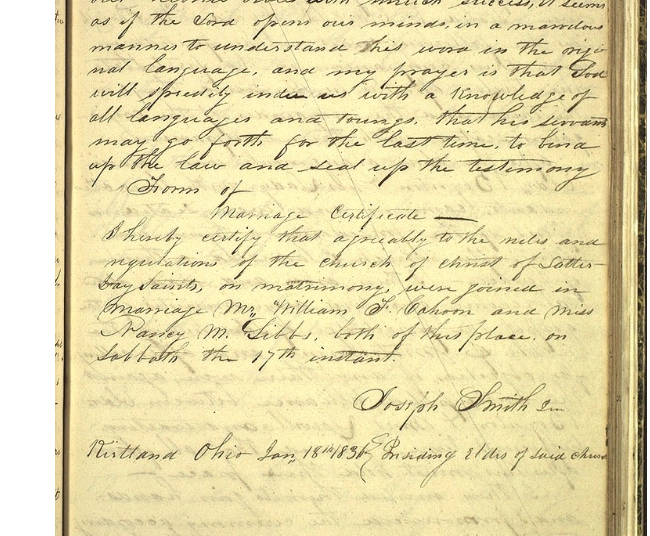 our recitna class with much success, it seems
as if the Lord opens our minds, in a marvelous
manner to understand his word in the origi
nal language, and my prayer is that God
will speedily indue us with a knowledge of
all languages and toungs, that his servants
may go forth for the last time, to bind
up the law and seal up the testimony
Form of
Marriage Certificate —
I hereby certify that agreeably to the rules and
regulations of the church of christ of Latter-
Day Saints, on matrimony, were joined in
marriage Mr. William F. Cahoon and Miss
Nancy M. Gibbs, both of this place, on
Sabbath the 17th instant.
Joseph Smith Jun
Kirtland Ohio Jan, 18th 1836 Presiding Elder of said church